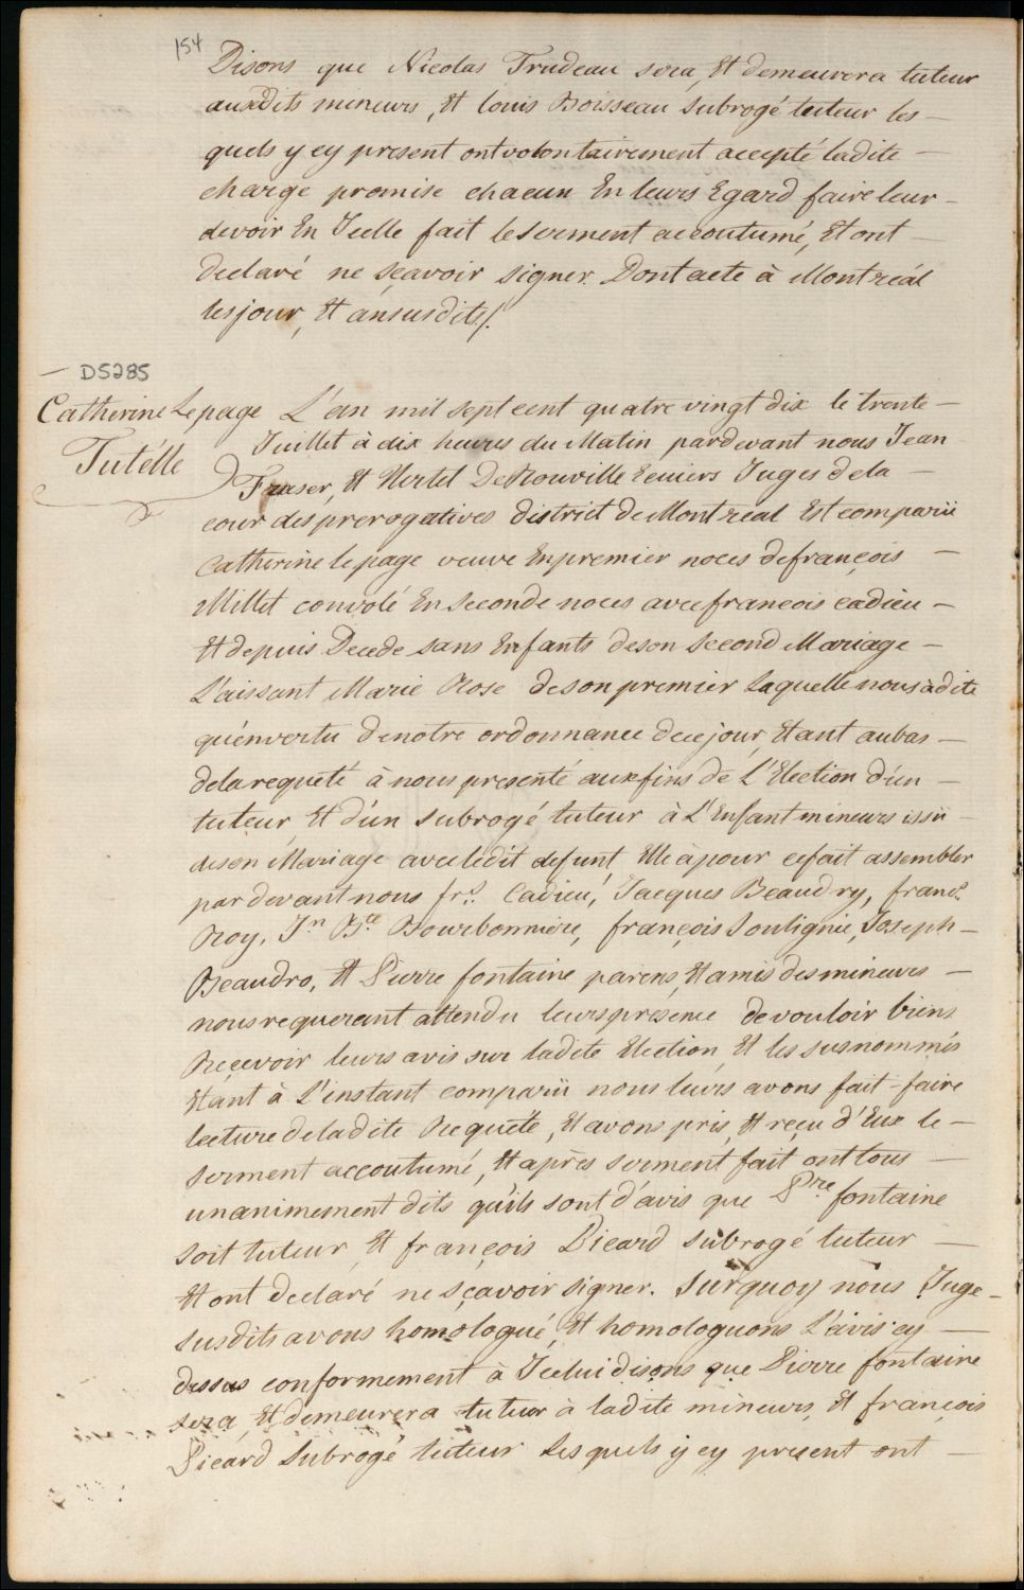 154
Disons que Nicolas Trudeau sera, Et demeurera tuteur
auxdits mineurs, Et louis Boisseau subrogé tuteur les-
quels y cy present ont volontairement accepté ladite
charge promise chacun En leurs Egard faire leur
devoir En Icelle fait le serment accoutumé, Et ont
declaré ne sçavoir signer. Dont acte à Montréal
les jour, Et an susdits/.
D5285
Catherine Lepage
Tutélle
L'an mil sept cent quatre vingt dix le trente
Juillet à dix heures du Matin pardevant nous Jean
Fraser, Et Hertel De Rouville Ecuiers Juges de la
cour des prerogatives district de Montreal Est comparüe
Catherine le page veuve En premier noces de françois
Millet convolé En Seconde noces avec francois cadieu
Et depuis Decede sans Enfants de son Second Mariage
L'aissant Marie Rose de son premier Laquelle nous à dite
qu'en vertu de notre ordonnance de ce jour, Etant au bas
de la requeté à nous presenté aux fins de L'Election d'un
tuteur Et d'un subrogé tuteur à L'Enfant mineurs issü
de son Mariage avec ledit defunt, Elle à pour ce fait assembler
par devant nous frs. Cadieu, Jacques Beaudry, francs.
Roy, Jn. Bte. Bourbonniére, françois Soulignie, Joseph
Beaudro, Et Pierre fontaine parens, Et amis des mineurs
nous requerant attendu leurs présence de vouloir biens
Recevoir leurs avis sur ladite Election, Et les susnommés
Etant à L'instant comparü nous leurs avons fait faire
lecture de ladite Requête, Et avons pris, Et reçu d'Eux le
serment accoutumé, Et après serment fait ont tous
unanimement dits qu'ils sont d'avis que Pre. fontaine
soit tuteur, Et françois Picard subrogé tuteur
Et ont declaré ne sçavoir signer. Surquoy nous Juge
susdits avons homologué, Et homologuons L'avis cy
dessus conformement à Icelui disons que Pierre fontaine
sera, Et demeurera tuteur à ladite mineurs, Et françois
Picard Subrogé tuteur Lesquels y cy present ont